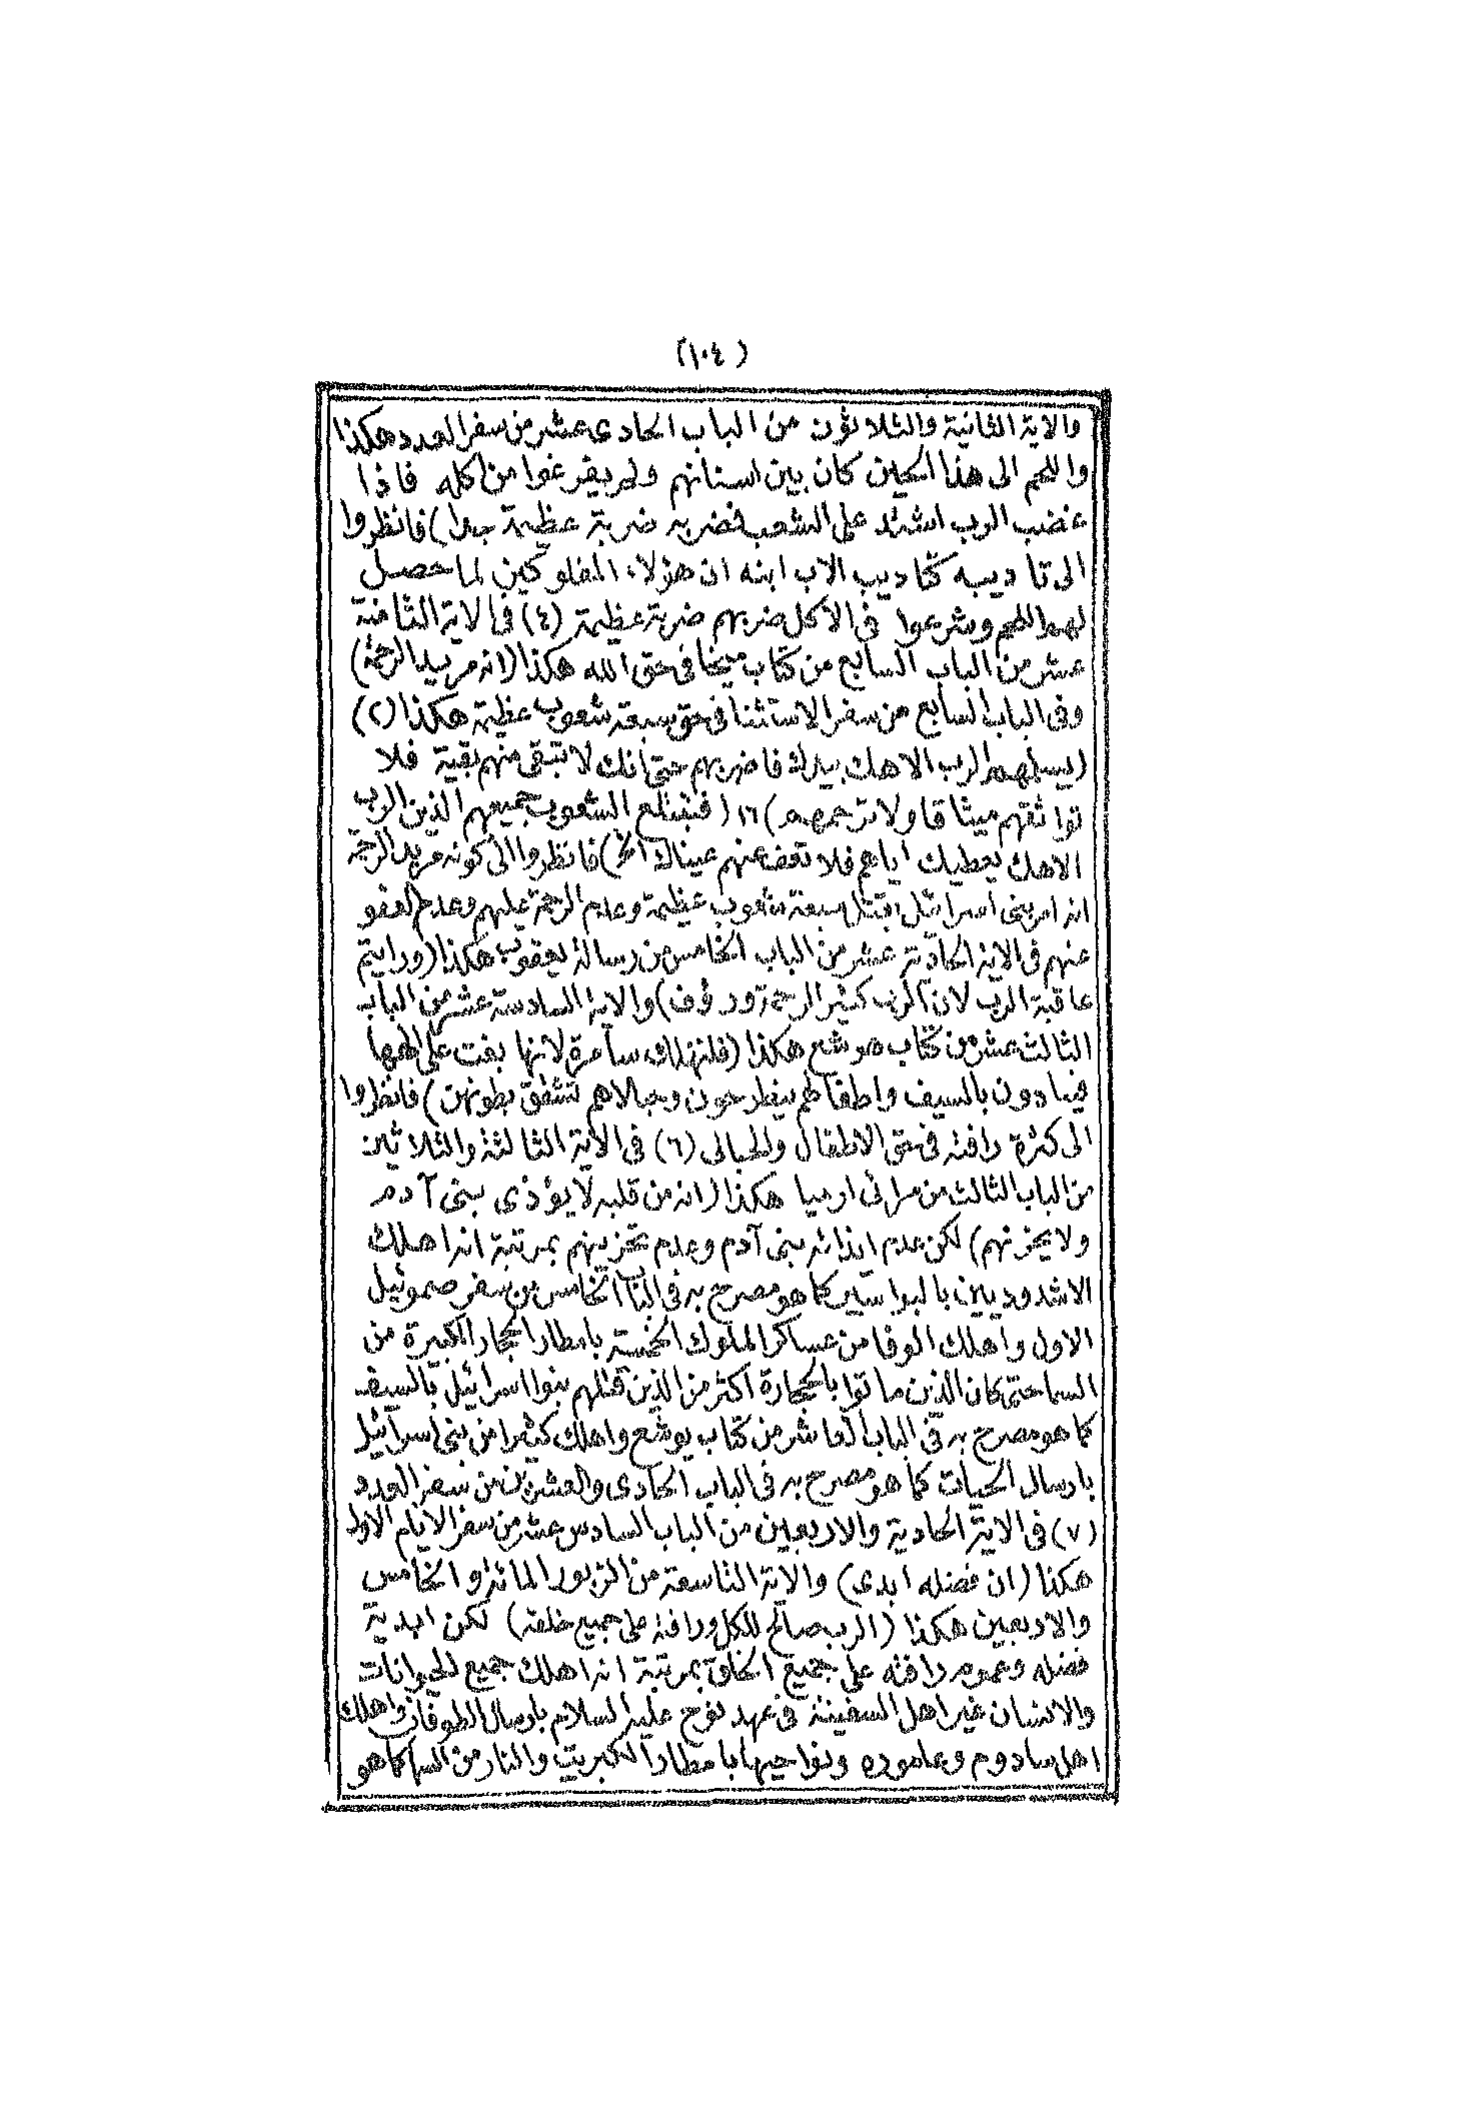 (١٠٤)
والاية الثانية والثلاثون من الباب الحادى عشر من سفر العدد هكذا
واللحم الى هذا الحين كان بين اسنانهم ولم يفرغوا من كله فاذا
غضب الرب اشتد على الشعب فضربه ضربة عظيمة جدا) فانظروا
الى تاديبه كتاديب الاب ابنه ان هؤلاء المفلوكين لما حصل
لهم اللحم وشرعوا فى الاكل ضربهم ضربة عظيمة (٤) فى الاية الثامنة
عشر من الباب السابع من كتاب ميخا فى حق الله هكذا (انه مريد الرحمة)
وفى الباب السابع من سفر الاستثنا فى حق سبعة شعوب عظيمة هكذا (٢)
(يسلمهم الرب الاهك بيدك فاضربهم حتى انك لا تبقى منهم بقية فلا
تواثقهم ميثاقا ولا ترحمهم) ١٦ (فتبتلع الشعوب جميعهم الذين الرب
الاهك يعطيك اياهم فلا تعف عنهم عيناك الخ) فانظروا الى كونه مريد الرحمة
انه امر بنى اسرائيل بقتل سبعة شعوب عظيمة وعدم الرحمة عليهم وعدم العفو
عنهم فى الاية الحادية عشر من الباب الخامس من رسالة يعقوب هكذا (ورايتم
عاقبة الرب لان الرب كثير الرحمة ورؤف) والاية السادسة عشر من الباب
الثالث عشر من كتاب هوشع هكذا (فلتهلك سامرة لانها بغت على الهها
فيبادون بالسيف واطفالهم ينطرحون وحبالاهم تتشقق بطونهن) فانظروا
الى كثرة رافته فى حق الاطفال والحبالى (٦) فى الاية الثالثة والثلاثين
من الباب الثالث من مراثى ارميا هكذا (انه من قلبه لا يؤذى بنى آدم
ولا يحزنهم) لكن عدم ايذائه بنى آدم وعدم تحزينهم بمرتبة انه اهلك
الاشدوديين بالبواسير كما هو مصرح به فى الباب الخامس من سفر صموئيل
الاول واهلك الوفا من عساكر الملوك الخمسة بامطار الحجار الكبيرة من
السما حتى كان الذين ماتوا بالحجارة اكثر من الذين قتلهم بنوا اسرائيل بالسيف
كما هو مصرح به فى الباب العاشر من كتاب يوشع واهلك كثيرا من بنى اسرائيل
بارسال الحيات كما هو مصرح به فى الباب الحادى والعشرين من سفر العدد
(٧) فى الاية الحادية والاربعين من الباب السادس عشر من سفر الايام الاول
هكذا (ان فضله ابدى) والاية التاسعة من الزبور المائة والخامس
والاربعين هكذا (الرب صالح للكل ورافته على جميع خلقه) لكن ابدية
فضله وعموم رافته على جميع الخلق بمرتبة انه اهلك جميع الحيوانات
والانسان غير اهل السفينة فى عهد نوح عليه السلام بارسال الطوفان واهلك
اهل سادوم وعاموره ونواحيها بامطار الكبريت والنار من السما كما هو